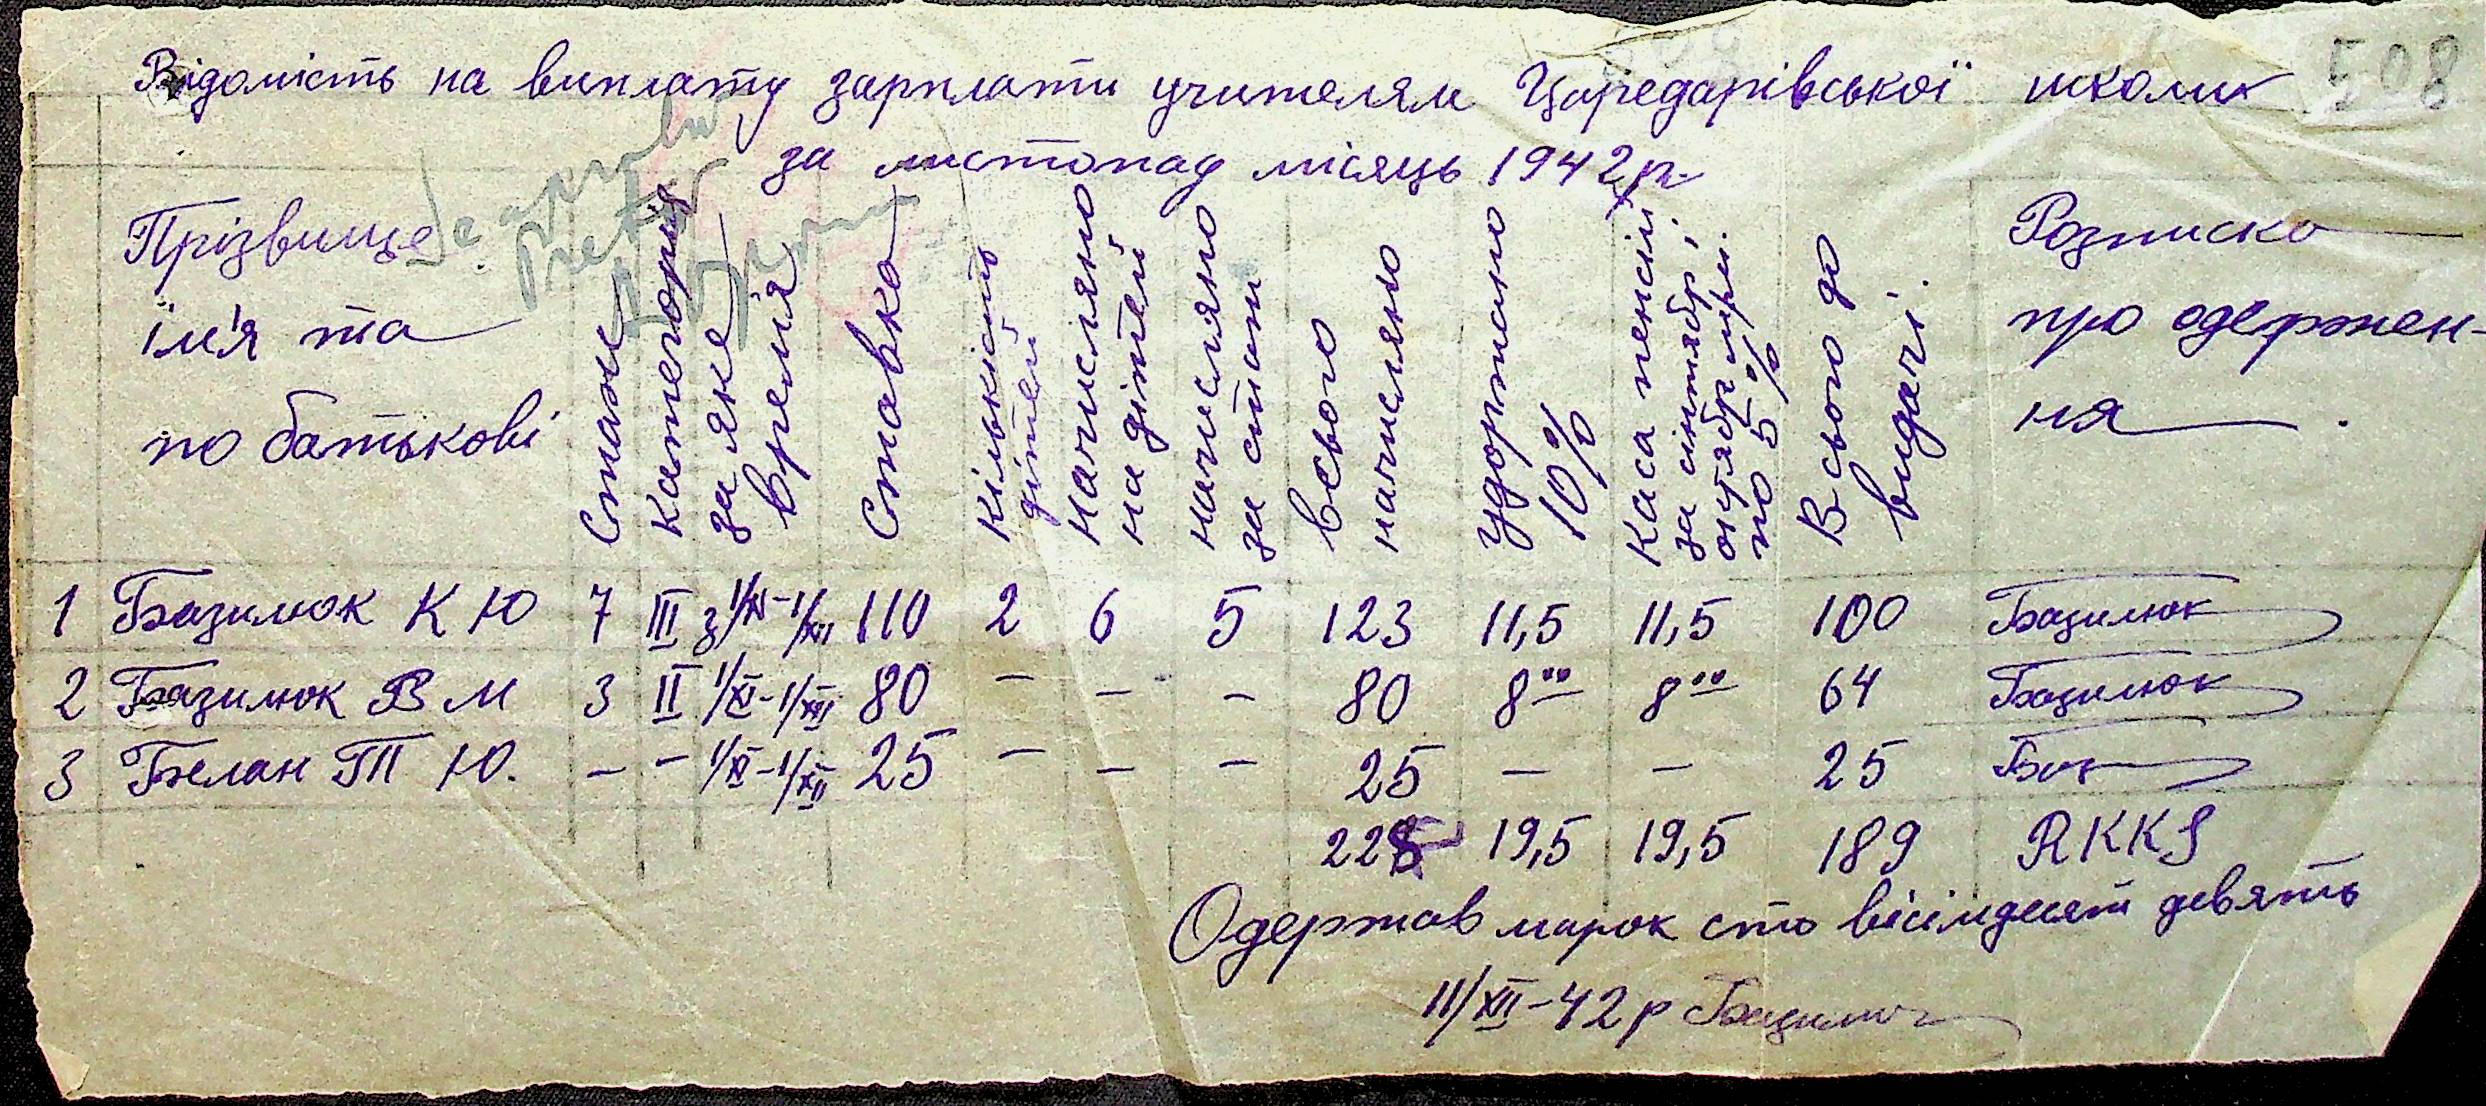 508
Відомість на виплату зарплати учителям Цареdaрівської школи
за листопад місяць 1942 р.
Прізвище ім'я та по батькові
Стаж
Категорія
за яке время
Ставка
кількість дітей
начисляно на дітей
начисляно за стаж
всього начисляно
удержано 10%
каса пенсій за сентябр і октябр мри. по 5%
Всього до видачі.
Розписка про одержен-ня.
1 Базилюк К Ю 7 III з 1/XI-1/XII 110 2 6 5 123 11,5 11,5 100 Базилюк
2 Базилюк В М 3 II 1/XI-1/XII 80 - - - 80 8 00 8 00 64 Базилюк
3 Белан Т Ю. - - 1/XI-1/XII 25 - - - 25 - - 25
228 19,5 19,5 189 RKKS
Одержав марок сто вісімдесят девять
11/XII-42 р Базилюк